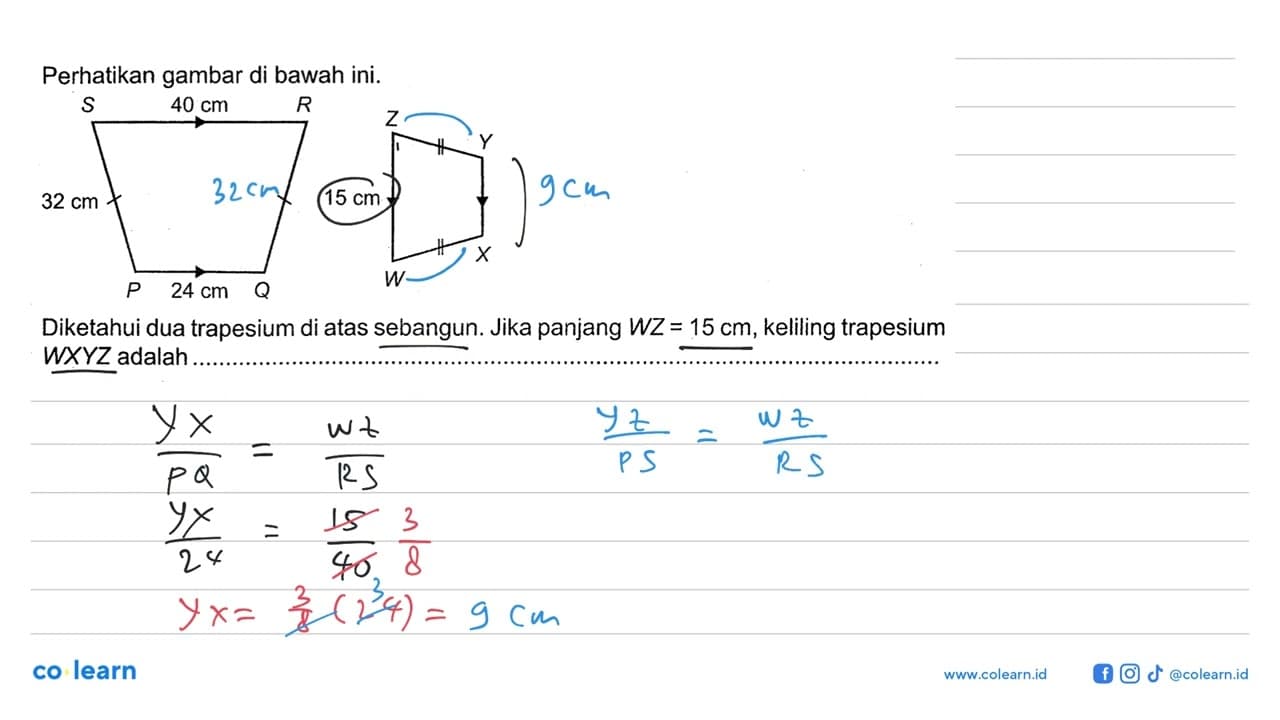 Perhatikan gambar di bawah ini.
S 40 cm R
Z
Y
32 cm
32 cm
15 cm
9 cm
X
W
P 24 cm Q
Diketahui dua trapesium di atas sebangun. Jika panjang WZ = 15 cm, keliling trapesium
WXYZ adalah ....................
YX/PQ = WZ/RS
YZ/PS = WZ/RS
YX/24 = 15/40 3/8
YX = 3/8 (24) 3 = 9 cm
co learn
www.colearn.id
@colearn.id